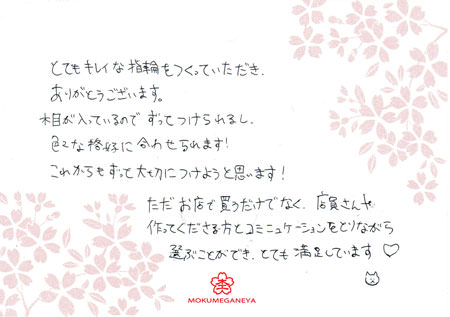 とてもキレイな指輪をつくっていただき、
ありがとうございます。
木目が入っているので ずっとつけられるし、
色々な格好に合わせられます!
これからもずって大切につけようと思います!
ただお店で買うだけでなく、店員さんや
作ってくださる方とコミニュケーションをとりながら
選ぶことができ、とても満足しています♡
MOKUMEGANEYA